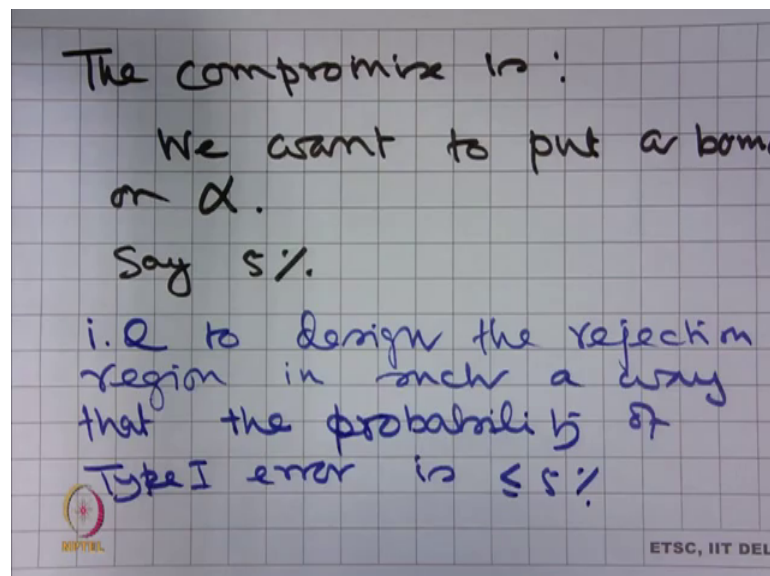 The compromise is:
We want to put a
on α.
Say 5%.
i.e to design the rejection
region in such a way
that the probability of
Type I error is ≤ 5%
NPTEL
ETSC, IIT DEL